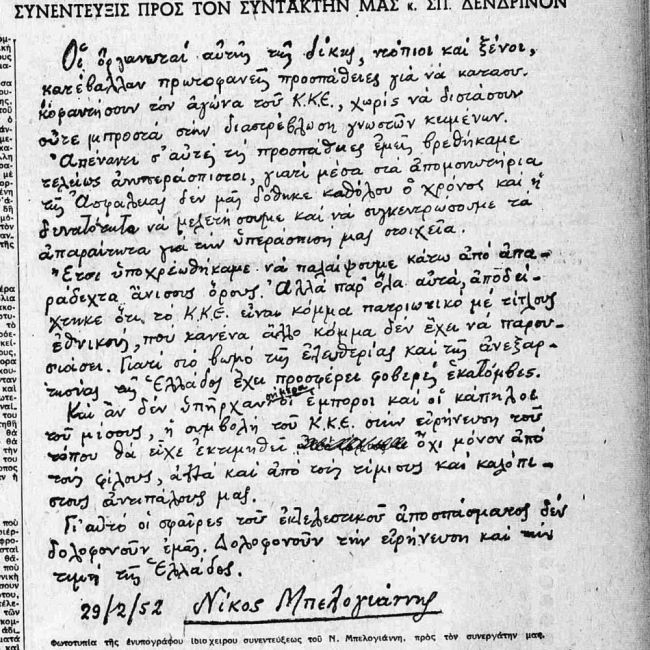 ΣΥΝΕΝΤΕΥΞΙΣ ΠΡΟΣ ΤΟΝ ΣΥΝΤΑΚΤΗΝ ΜΑΣ κ. ΣΠ. ΔΕΝΔΡΙΝΟΝ
Οἱ ὀργανωταὶ αὐτῆς τῆς δίκης, ντόπιοι καὶ ξένοι,
κατέβαλλαν πρωτοφανεῖς προσπάθειες γιὰ νὰ κατασυ-
κοφαντήσουν τὸν ἀγώνα τοῦ Κ.Κ.Ε., χωρὶς νὰ διστάσουν
οὔτε μπροστὰ στὴν διαστρέβλωση γνωστῶν κειμένων.
Ἀπέναντι σ' αὐτὲς τὶς προσπάθειες ἐμεῖς βρεθήκαμε
τελείως ἀνυπεράσπιστοι, γιατὶ μέσα στὰ ἀπομονωτήρια
τῆς Ἀσφαλείας δὲν μᾶς δόθηκε καθόλου ὁ χρόνος καὶ ἡ
δυνατότητα νὰ μελετήσουμε καὶ νὰ συγκεντρώσουμε τὰ
ἀπαραίτητα γιὰ τὴν ὑπεράσπισή μας στοιχεῖα.
Ἔτσι ὑποχρεωθήκαμε νὰ παλαίψουμε κάτω ἀπὸ ἀπα-
ράδεχτα ἄνισους ὅρους. Ἀλλὰ παρ' ὅλα αὐτὰ, ἀποδεί-
χτηκε ὅτι τὸ Κ.Κ.Ε. εἶναι κόμμα πατριωτικὸ μὲ τίτλους
ἐθνικους, ποὺ κανένα ἄλλο κόμμα δὲν ἔχει νὰ παρου-
σιάσει. Γιατὶ στὸ βωμὸ τῆς ἐλευθερίας καὶ τῆς ἀνεξαρ-
τησίας τῆς Ἑλλάδος ἔχει προσφέρει φοβερὲς ἑκατόμβες.
Καὶ ἂν δὲν ὑπῆρχαν σήμερα οἱ ἔμποροι καὶ οἱ κάπηλοι
τοῦ μίσους, ἡ συμβολὴ τοῦ Κ.Κ.Ε. στὴν εἰρήνευση τοῦ
τόπου θὰ εἶχε ἐκτιμηθεῖ ὄχι μόνον ἀπὸ
τοὺς φίλους, ἀλλὰ καὶ ἀπὸ τοὺς τίμιους καὶ καλόπι-
στους ἀντιπάλους μας.
Γι' αὐτὸ οἱ σφαῖρες τοῦ ἐκτελεστικοῦ ἀποσπάσματος δὲν
δολοφονοῦν ἐμᾶς. Δολοφονοῦν τὴν εἰρήνευση καὶ τὴν
τιμὴ τῆς Ἑλλάδος.
29/2/52 Νῖκος Μπελογιάννης
Φωτοτυπία τῆς ἐνυπογράφου ἰδιοχείρου συνεντεύξεως τοῦ Ν. Μπελογιάννη, πρὸς τὸν συνεργάτην μας.